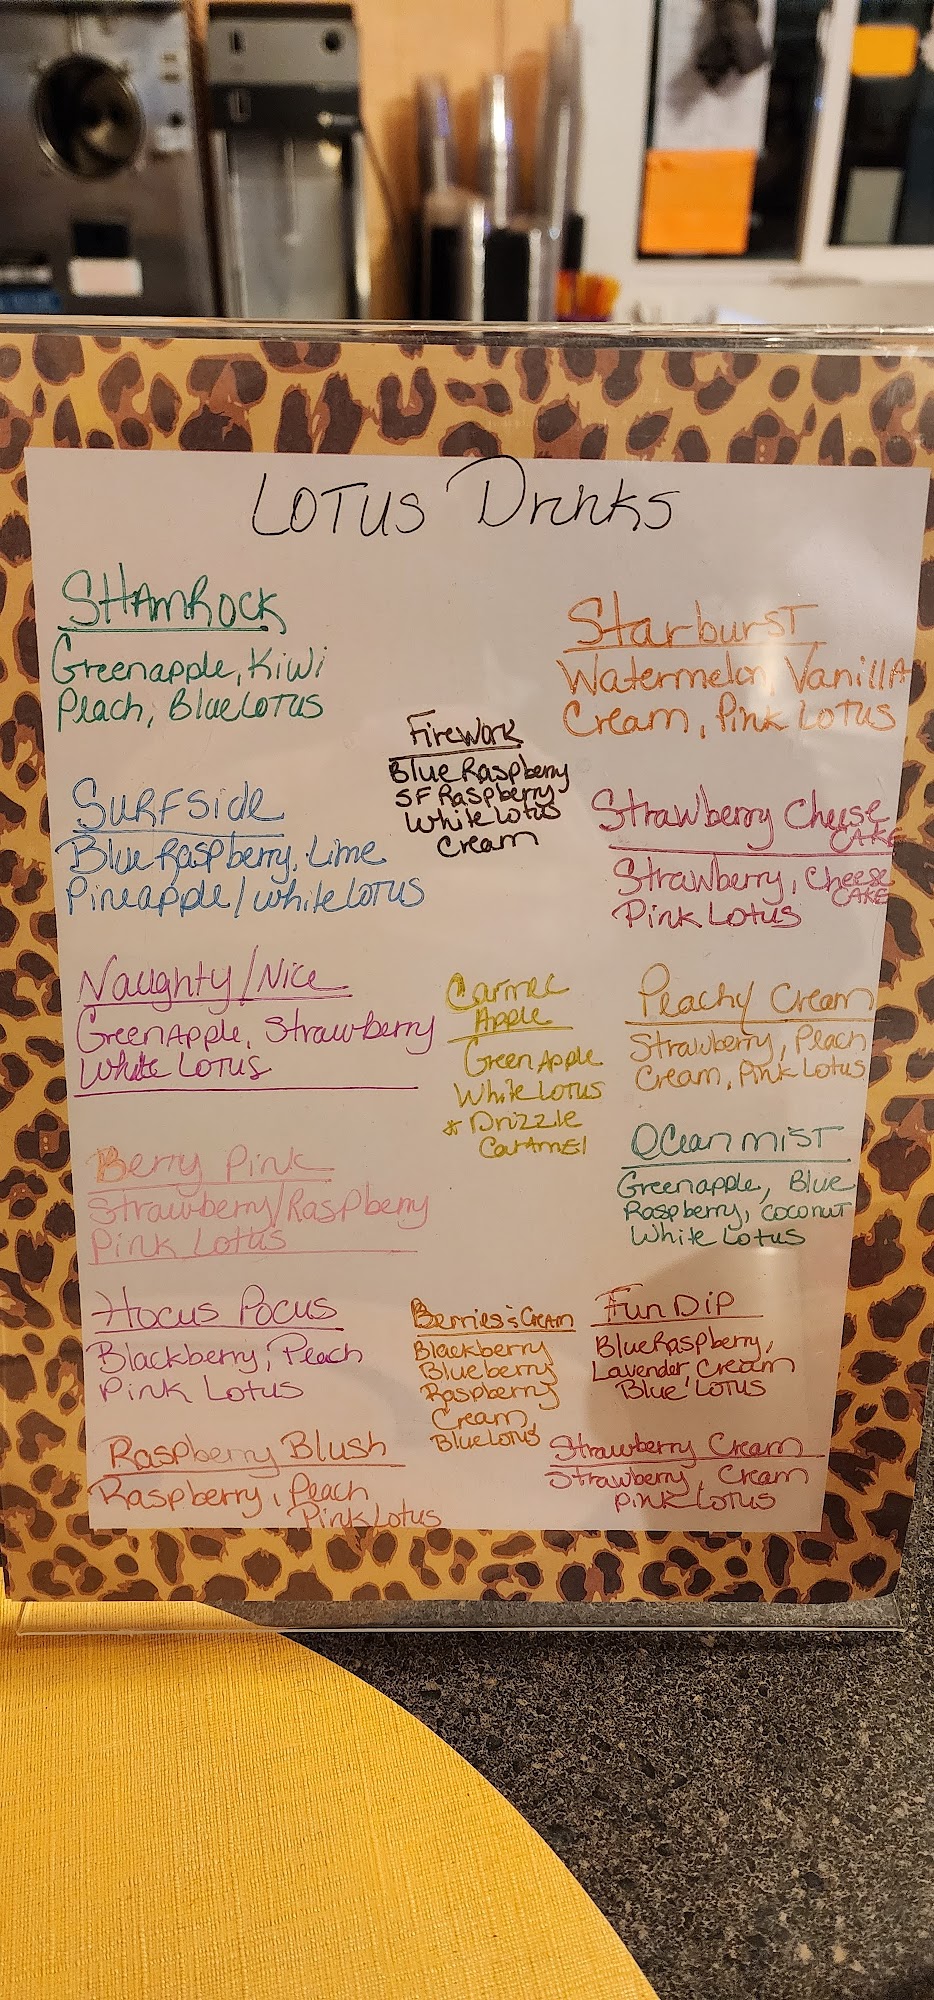 LOTUS Drinks
SHAMROCK
Greenapple, Kiwi
Peach, Blue LOTUS
Surfside
Blue Raspberry, Lime
Pineapple / white LOTUS
Naughty/Nice
Green Apple, Strawberry
White LOTUS
Berry Pink
Strawberry/Raspberry
Pink Lotus
Hocus Pocus
Blackberry, Peach
Pink Lotus
Raspberry Blush
Raspberry, Peach
Pink Lotus
Firework
Blue Raspberry
SF Raspberry
White Lotus
Cream
Carmel
Apple
Green Apple
White LOTUS
* Drizzle
Caramel
Berries & Cream
Blackberry
Blueberry
Raspberry
Cream,
Blue Lotus
Starburst
Watermelon, Vanilla
Cream, Pink Lotus
Strawberry Cheese
CAKE
Strawberry, Cheese
CAKE
Pink Lotus
Peachy Cream
Strawberry, Peach
Cream, Pink Lotus
Ocean Mist
Greenapple, Blue
Raspberry, Coconut
White Lotus
Fun Dip
Blue Raspberry,
Lavender, Cream
Blue LOTUS
Strawberry Cream
Strawberry, Cream
Pink LOTUS